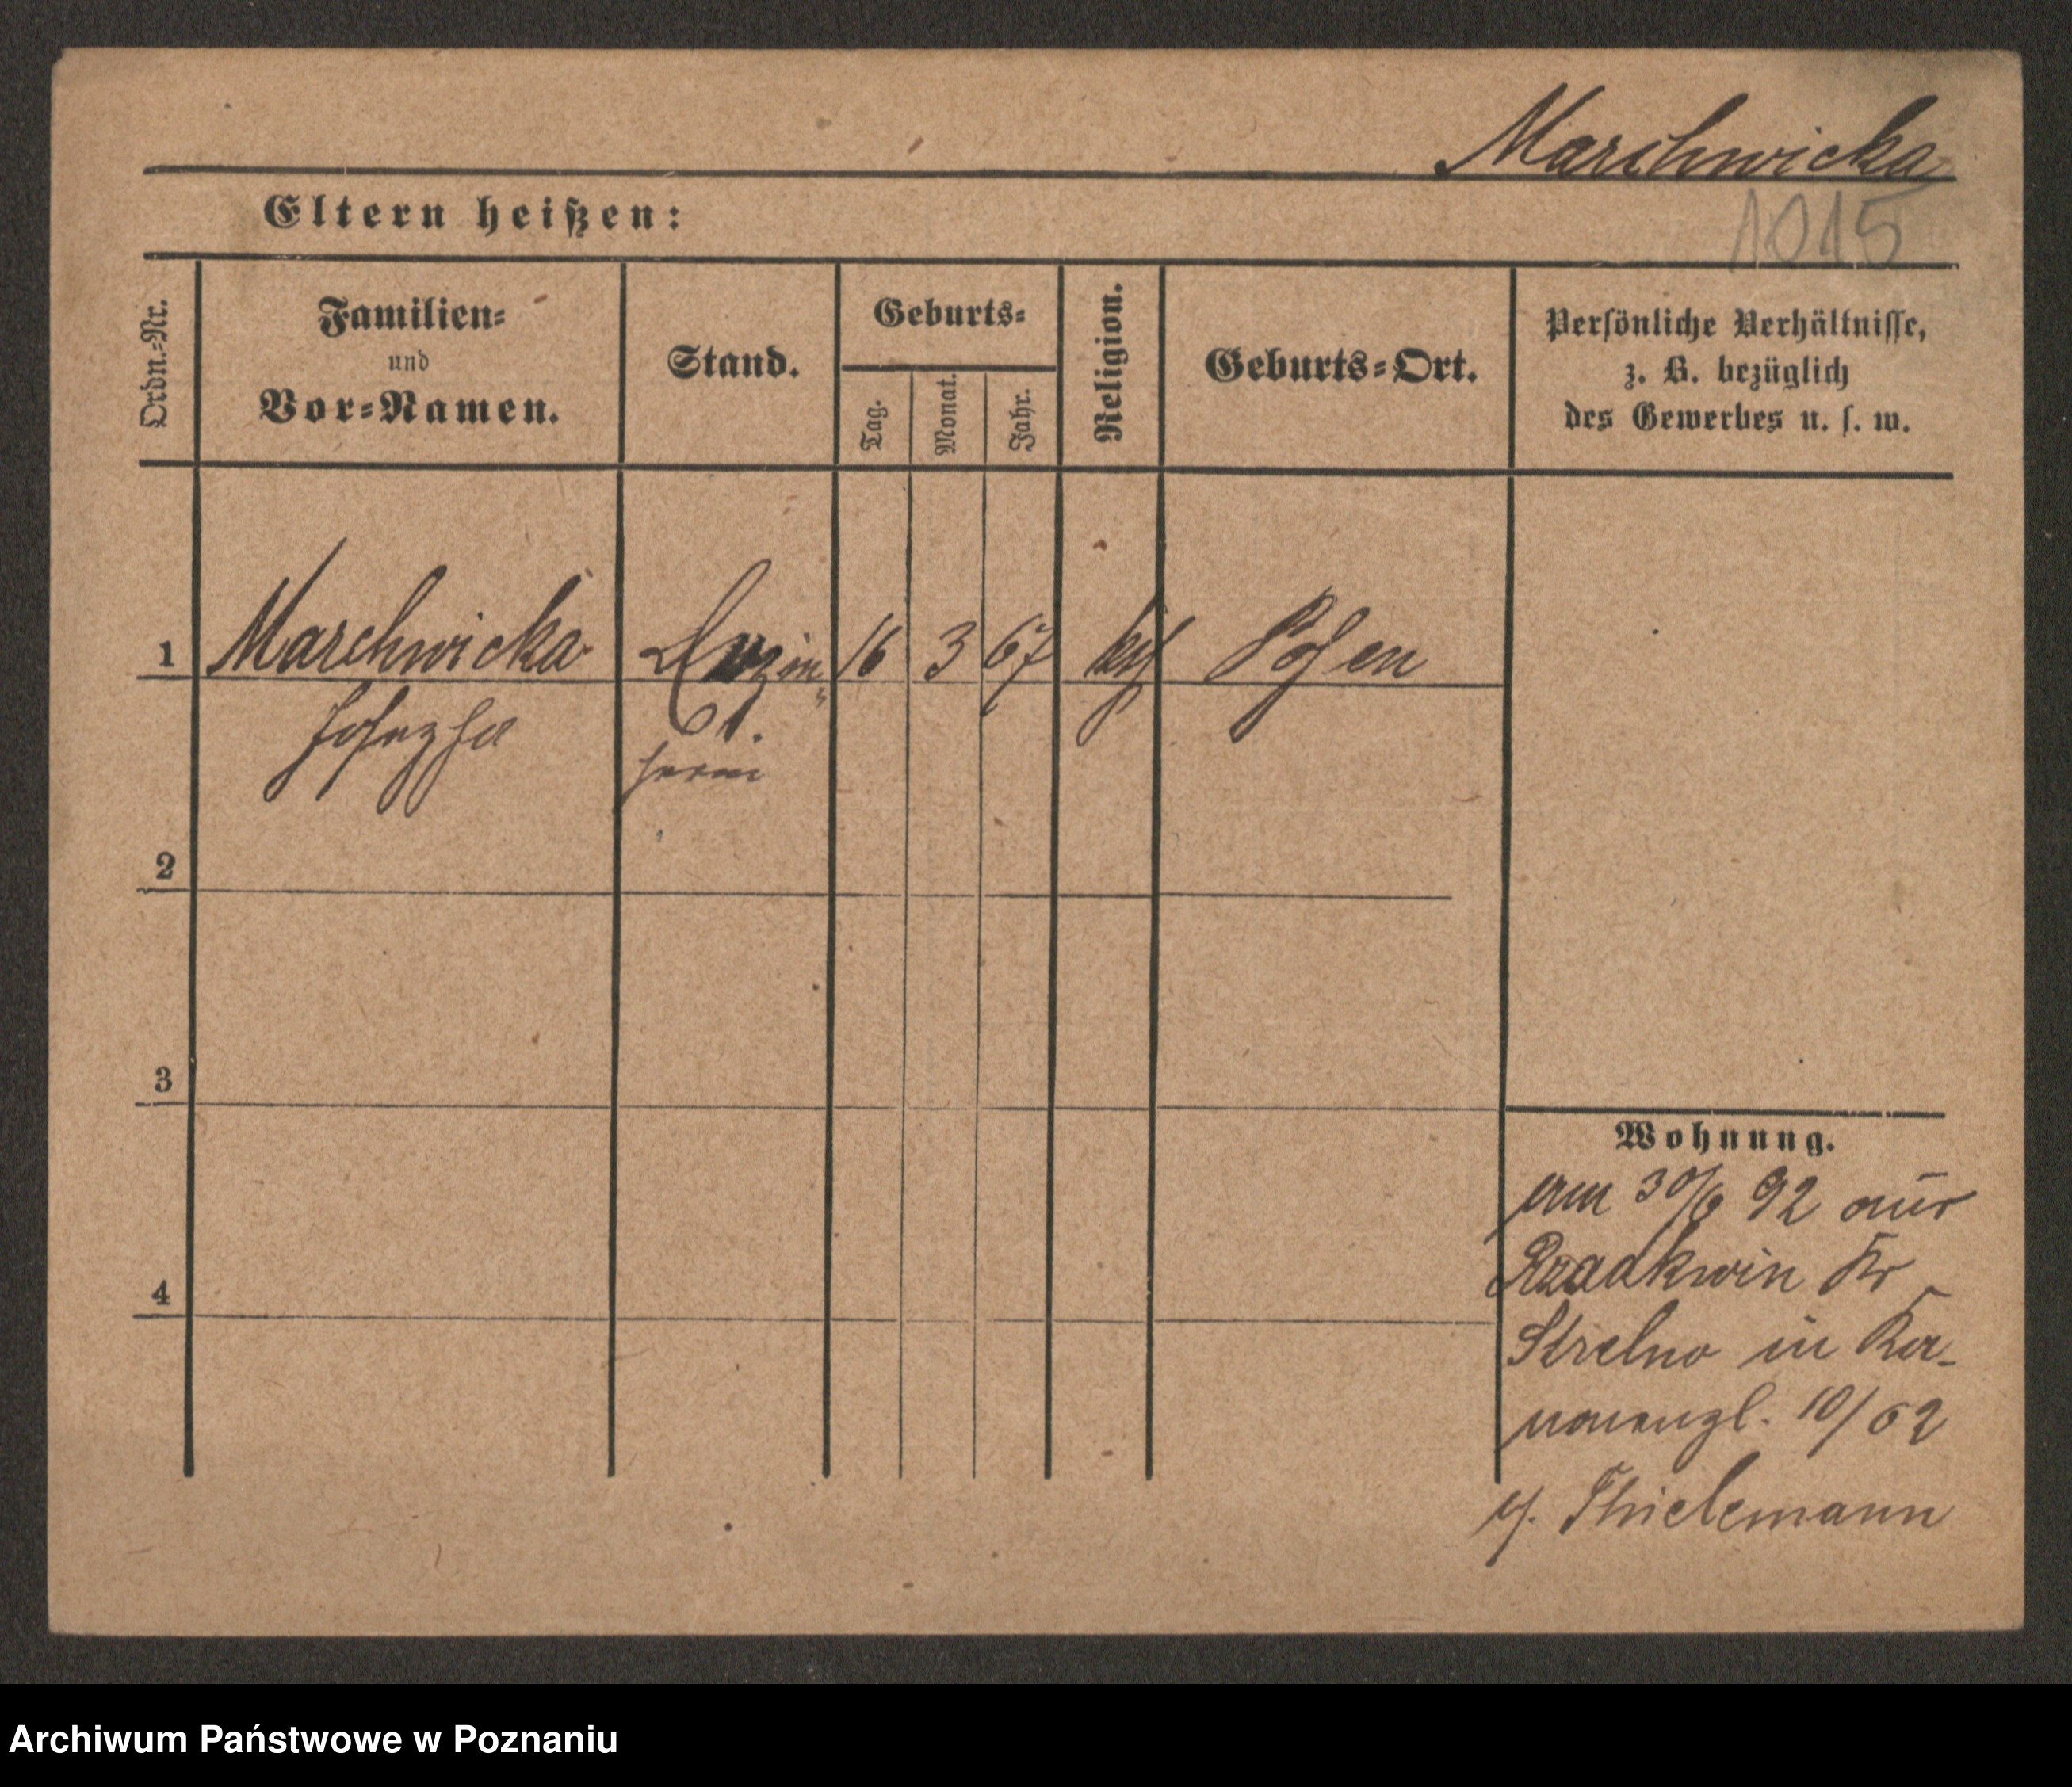 Marchwicka
1015
Eltern heißen:
Ordn.-Nr.
Familien-
und
Vor-Namen.
Stand.
Geburts-
Tag.
Monat.
Jahr.
Religion.
Geburts-Ort.
Persönliche Verhältnisse,
z. B. bezüglich
des Gewerbes u. s. w.
1 Marchwicka 16 3 67 kth Posen
Josepha
2
3
4
Wohnung.
am 30/6 92 aus
Rzadkwin Kr
Strelno in
10/62
Thielemann
Archiwum Państwowe w Poznaniu